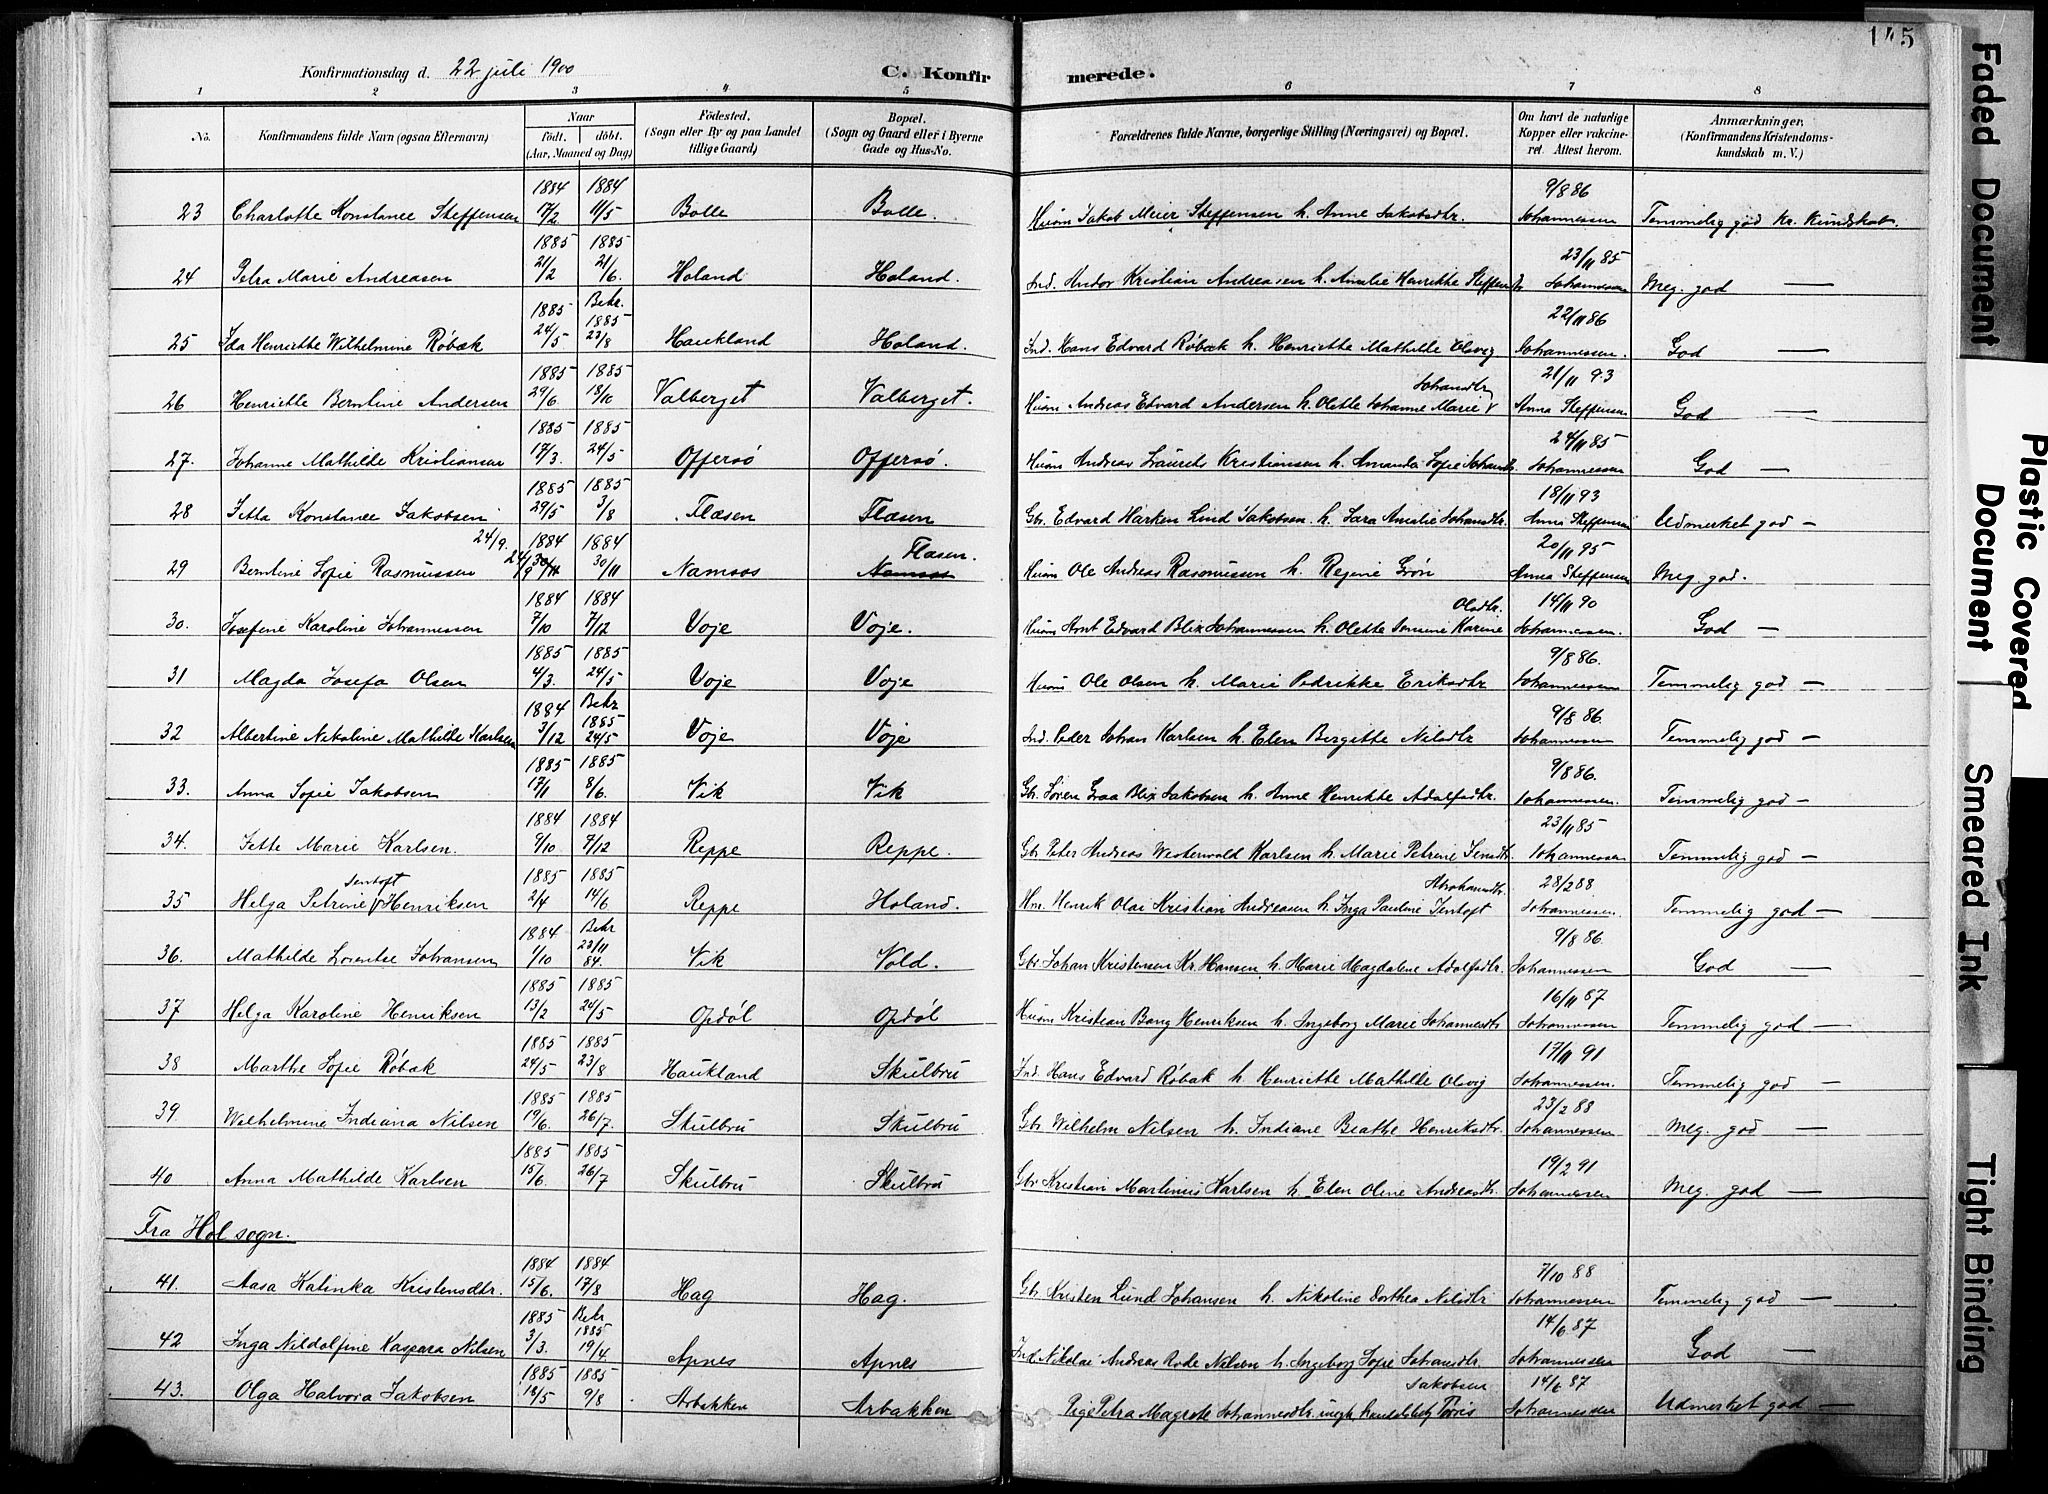 145
Konfirmationsdag d. 22 juli 1900
C. Konfirmerede.
1 2 3 4 5 6 7 8
No. Konfirmandens fulde Navn (ogsaa Efternavn) Naar födt. döbt. (Aar, Maaned og Dag) Födested. (Sogn eller By og paa Landet tillige Gaard) Bopæl. (Sogn og Gaard eller i Byerne Gade og Hus-No. Forældrenes fulde Navne, borgerlige Stilling (Næringsvei) og Bopæl. Om havt de naturlige Kopper eller vakcineret. Attest herom. Anmærkninger. (Konfirmandens Kristendomskundskab m. V.)
23 Charlotte Konstance Steffensen 1884 17/2 1884 11/5 Bolle Bolle. Husm Jakob Meier Steffensen h. Anne Jakobsdtr. 9/8 86 Johannessen Temmelig god kr. kundskab.
24 Petra Marie Andreasen 1885 21/2 1885 21/6. Holand Holand. Ind. Andor Kristian Andreasen h. Amalie Henrikke Steffensdtr 23/11 85 Johannessen Meg. god —
25 Ida Henriette Wilhelmine Röbæk 1885 24/5 Bekr. 1885 23/8 Haukland Holand. Ind. Hans Edvard Röbæk h. Henriette Mathilde Olsvig 22/11 86 Johannessen. God —
26 Henriette Berntine Andersen 1885 29/6. 1885 18/10 Valberget Valberget. Husm Andreas Edvard Andersen h. Olette Johanne Marie Johansdtr 21/11 93 Anna Steffensen God —
27. Johanne Mathilde Kristiansen 1885 17/3. 1885 24/5 Offersö Offersö. Husm Andreas Laurits Kristiansen h. Amanda Sofie Johansdtr. 24/11 85 Johannessen God —
28 Jetta Konstance Jakobsen 1885 29/5 1885 3/8 Flæsen Flæsen Gbr. Edvard Harken Lind Jakobsen h. Sara Amalie Johansdtr. 18/11 93 Anna Steffensen Udmerket god —
29 Berntine Sofie Rasmussen 24/9. 1884 24/9 30/11 1884 30/11 Namsos Namsos Flæsen. Husm Ole Andreas Rasmussen h. Regine Grön 20/11 95 Anna Steffensen Meg. god.
30. Josefine Karoline Johannessen 1884 7/10 1884 7/12 Voje Voje. Husm Arnt Edvard Blix Johannessen h. Olette Karine Olsdtr. 14/11 90 Johannessen. God —
31 Magda Josefa Olsen 1885 4/3. 1885 24/5 Voje Voje Husm Ole Olsen h. Marie Pedrikke Eriksdtr 9/8 86. Johannessen Temmelig god —
32 Albertine Nikoline Mathilde Karlsen 1884 3/12 Bekr 1885 24/5 Voje Voje Ind. Peder Johan Karlsen h. Elen Birgitte Nilsdtr 9/8 86. Johannessen Temmelig god —
33. Anna Sofie Jakobsen 1885 17/1 1885 8/6. Vik Vik Gbr. Sören Graa Blix Jakobsen h. Anne Henrikke Adolfsdtr. 9/8 86. Johannessen. Temmelig god —
34. Jette Marie Karlsen. 1884 9/10 1884 7/12 Reppe Reppe. Gbr Peter Andreas Westerwold Karlsen h. Marie Petrine Jensdtr. 23/11 85 Johannessen Temmelig god —
35 Helga Petrine Jentoft Henriksen 1885 2/4 1885 14/6 Reppe Holand. Hm. Henrik Olai Kristian Andreasen h. Inga Pauline Jentoft Abrahamsdtr. 28/2 88 Johannessen. Temmelig god —
36. Mathilde Lorentse Johansen 1884 1/10 Bekr 23/11 84. Vik Vold. Gbr Johan Kristensen Kr. Hansen h. Marie Magdalene Adolfsdtr. 9/8 86. Johannessen God —
37 Helga Karoline Henriksen 1885 13/2 1885 24/5 Opdöl Opdöl Husm Kristian Bang Henriksen h. Ingeborg Marie Johannesdtr 16/11 87 Johannessen Temmelig god —
38 Marthe Sofie Röbæk 1885 24/5 1885 23/8 Haukland Skulbru Ind. Hans Edvard Röbæk h. Henriette Mathilde Olsvig 17/11 91 Johannessen. Temmelig god —
39 Wilhelmine Indiana Nilsen 1885 19/6. 1885 26/7 Skulbru Skulbru Gbr Wilhelm Nilsen h. Indiane Beathe Henriksdtr. 23/2 88 Johannessen Meg. god —
40 Anna Mathilde Karlsen 1885 15/6. 1885 26/7 Skulbru Skulbru Gbr Kristian Martinus Karlsen h. Elen Oline Andreasdtr. 19/2 91 Johannessen Meg. god —
Fra Hol sogn.
41. Aasa Katinka Kristensdtr. 1884 15/6. 1884 17/8 Hag Hag. Gbr Kristen Lund Johansen h. Nikoline Dorthea Nilsdtr 7/10 88 Johannessen Temmelig god —
42 Inga Nildolfine Kaspara Nilsen 1885 3/3. Bekr 1885 19/4 Apnes Apnes Ind. Nikolai Andreas Rode Nilsen h. Ingeborg Sofie Johansdtr. 14/6 87 Johannessen God —
43. Olga Halvora Jakobsen 1885 18/5 1885 9/8 Arbakken Arbakken Pige Petra Magrete Johannesdtr. Jakobsen 14/6 87 Johannessen Udmerket god —
Faded Document
Plastic Covered Document
Smeared Ink
Tight Binding